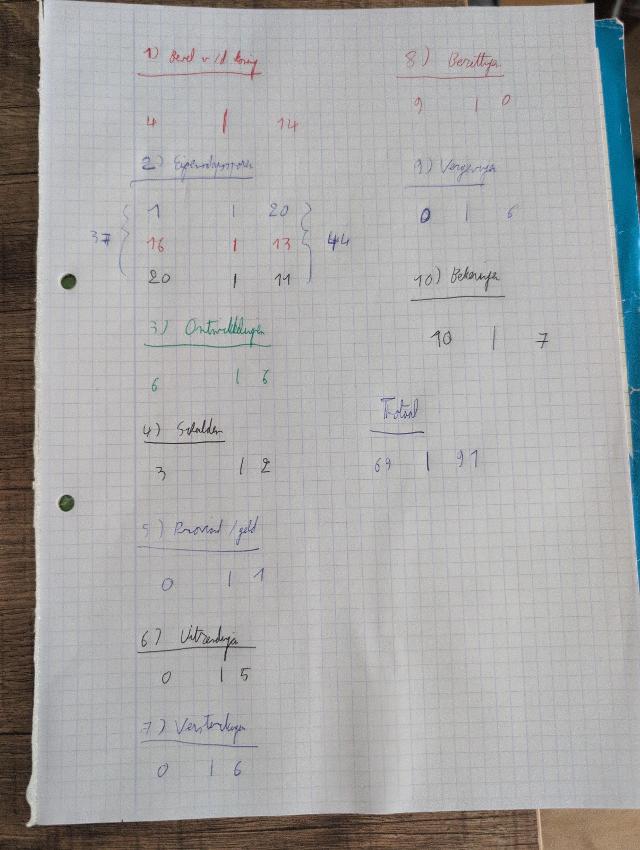 1) Bevel v/d koning
4 | 14
2) Eigendommen
1 | 20
37 { 16 | 13 } 44
20 | 11
3) Ontwikkelingen
6 | 6
4) Schulden
3 | 2
5) Proviand/geld
0 | 1
6) Uitzendingen
0 | 5
7) Versterkingen
0 | 6
8) Bezittingen
9 | 0
9)
0 | 6
10) Bekeringen
10 | 7
Totaal
69 | 91